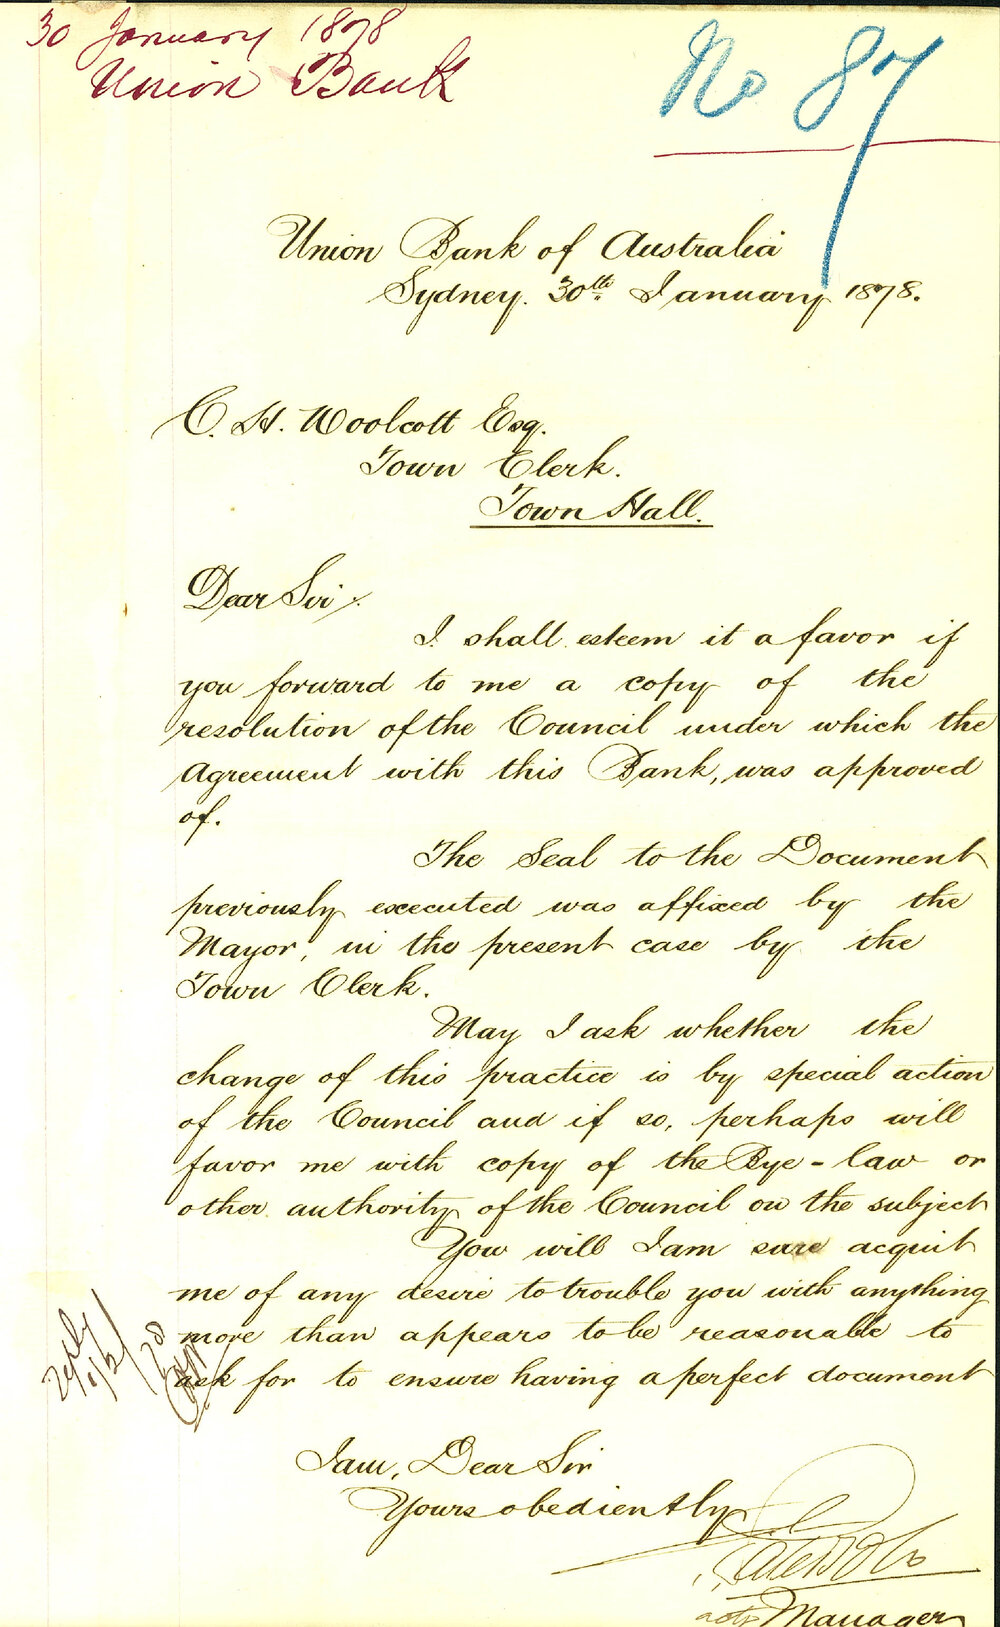 30 January 1878
Union Bank
No 87
Union Bank of Australia
Sydney. 30th January 1878.
C. H. Woolcott Esq.
Town Clerk.
Town Hall.
Dear Sir,
I shall esteem it a favor if
you forward to me a copy of the
resolution of the Council under which the
Agreement with this Bank, was approved
of.
The Seal to the Document
previously executed was affixed by the
Mayor, in the present case by the
Town Clerk.
May I ask whether the
change of this practice is by special action
of the Council and if so, perhaps will
favor me with copy of the Bye-law or
other authority of the Council on the subject
You will I am sure acquit
me of any desire to trouble you with anything
more than appears to be reasonable to
ask for to ensure having a perfect document
I am, Dear Sir
Yours obediently
Manager